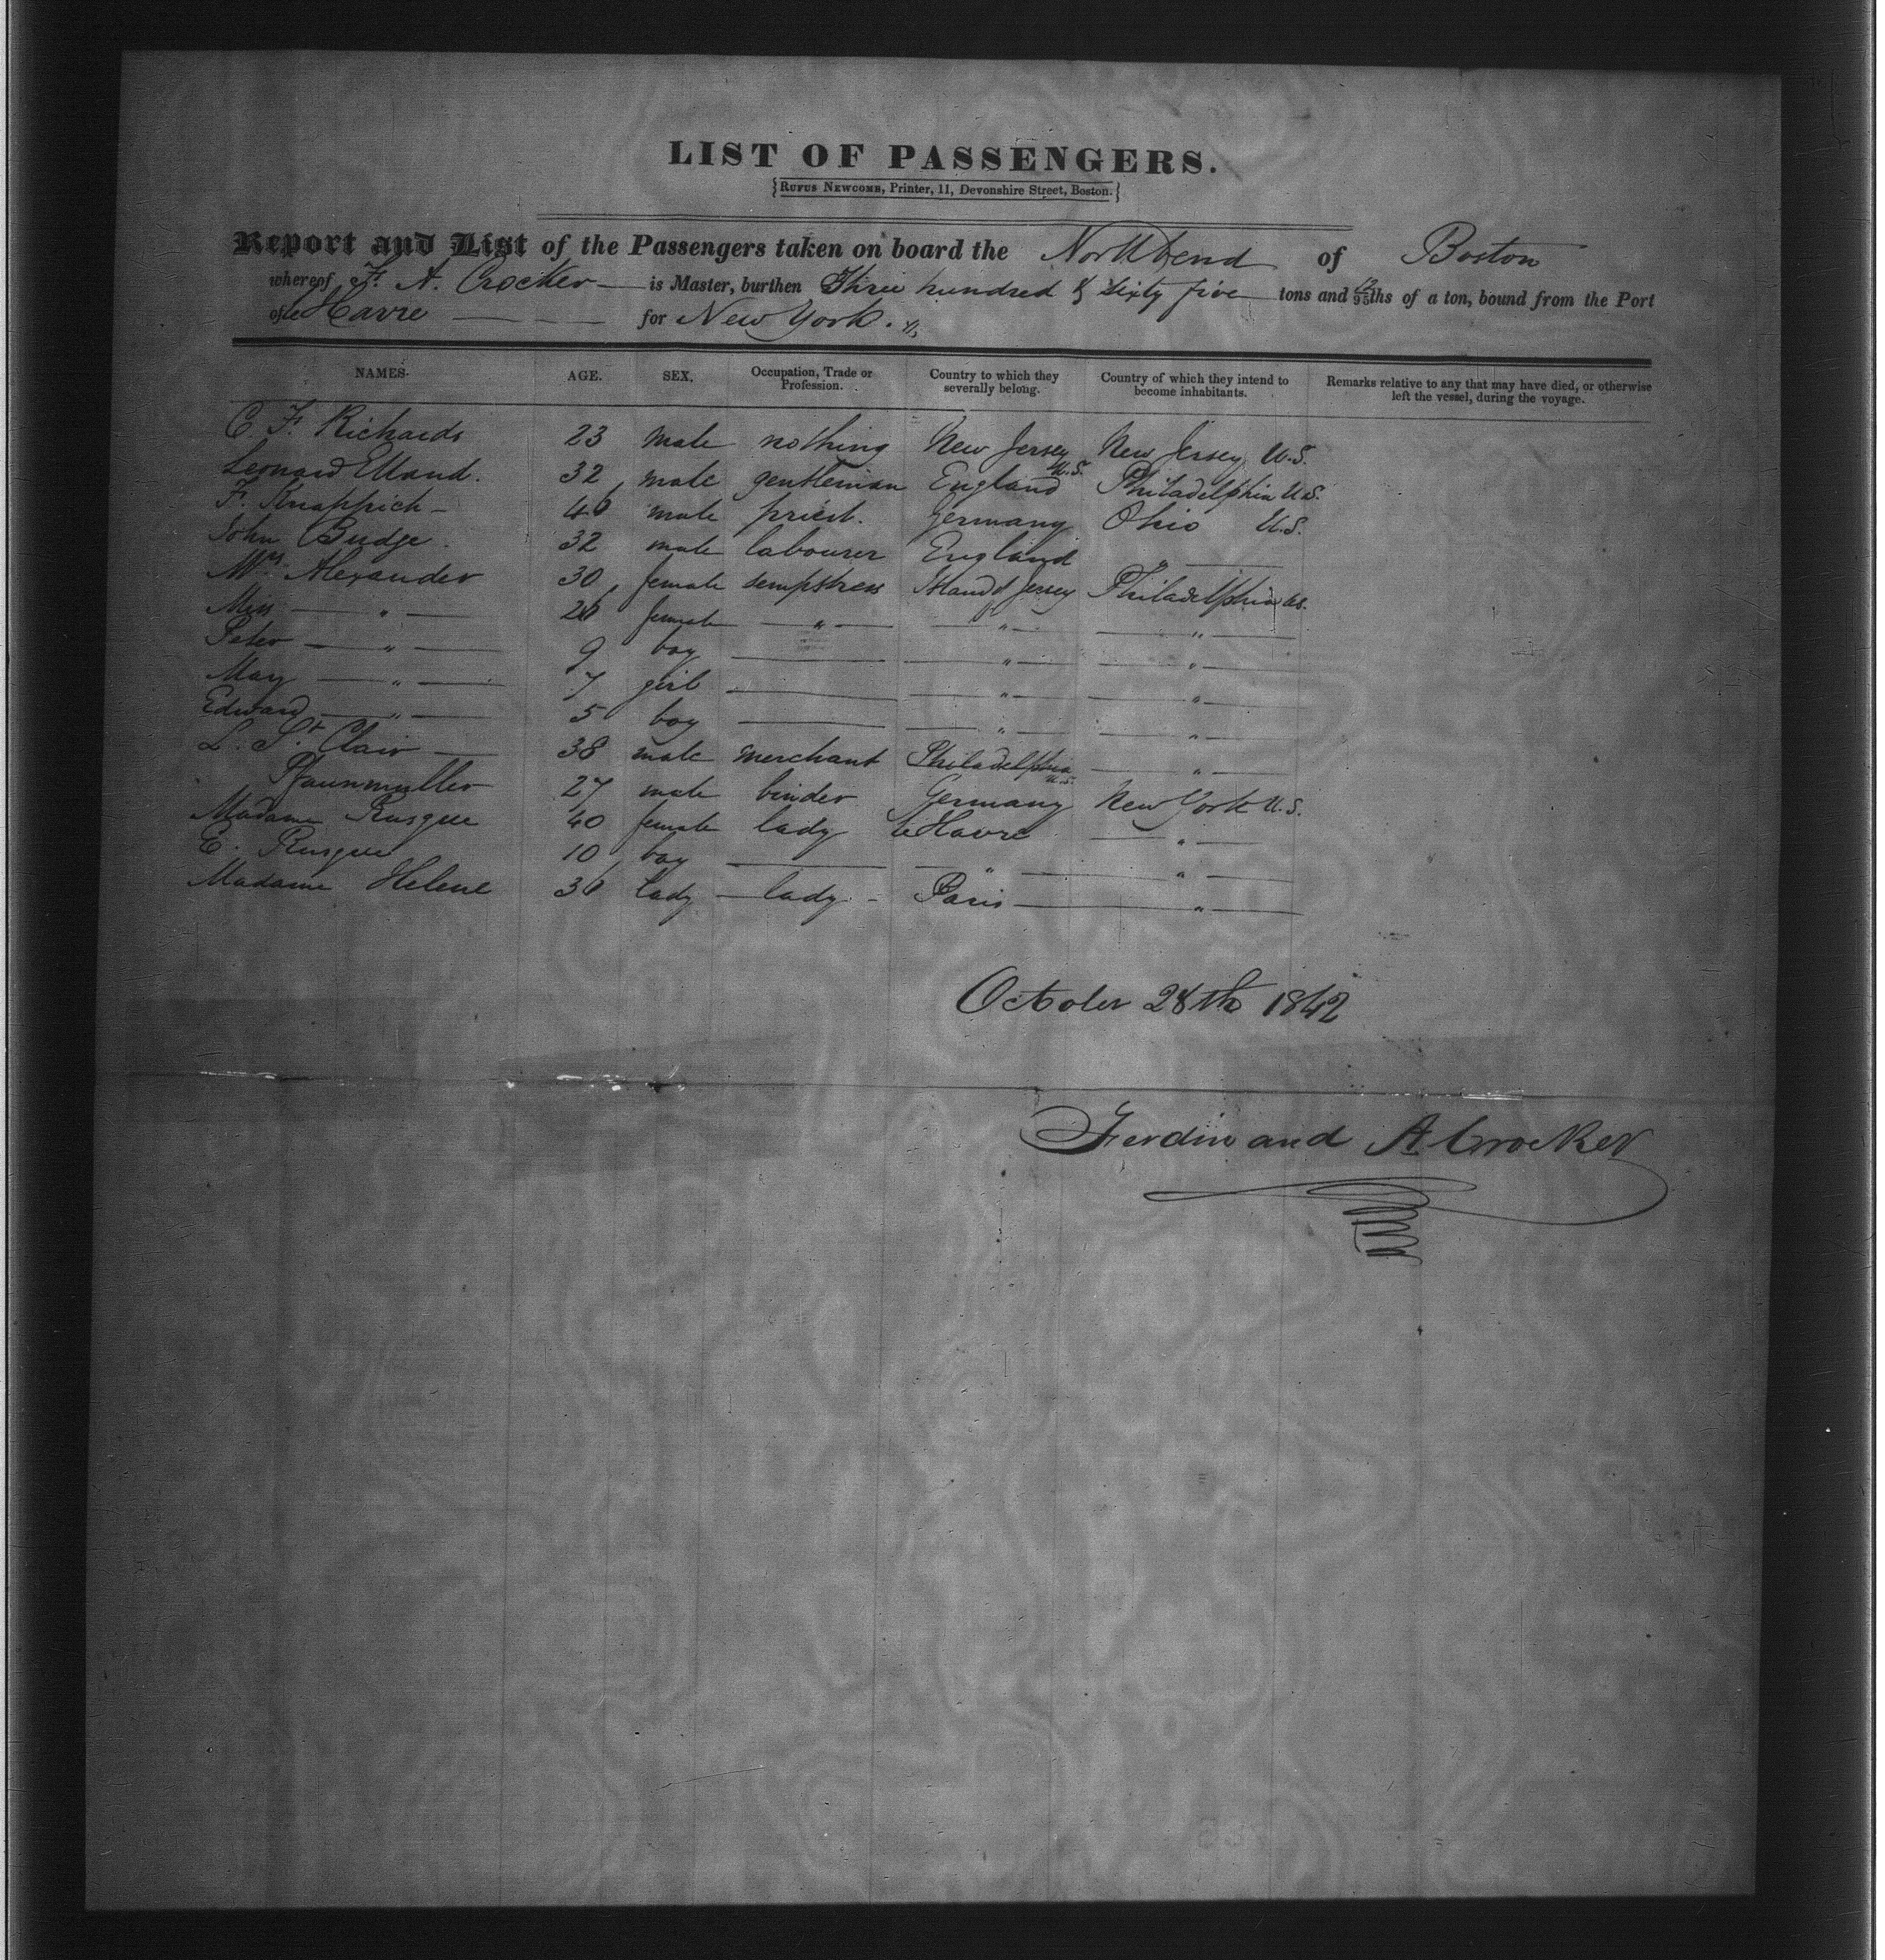 LIST OF PASSENGERS.
{RUFUS NEWCOMB, Printer, 11, Devonshire Street, Boston.}
Report and List of the Passengers taken on board the North bend of Boston
whereof F. A. Crocker is Master, burthen Three hundred & sixty five tons and 12/95ths of a ton, bound from the Port
of le Havre for New York.
NAMES. AGE. SEX. Occupation, Trade or Profession. Country to which they severally belong. Country of which they intend to become inhabitants. Remarks relative to any that may have died, or otherwise left the vessel, during the voyage.
C. F. Richards 23 male nothing New Jersey U.S. New Jersey U.S.
Leonard Elland. 32 male gentleman England Philadelphia U.S.
F. Knappich 46 male priest. Germany Ohio U.S.
John Budge. 32 male labourer England "
Mrs. Alexander 30 female sempstress Island Jersey Philadelphia U.S.
Miss " 26 female " " "
Peter " 9 boy " "
Mary " 7 girl " "
Edward " 5 boy " "
L. St. Clair 38 male merchant Philadelphia U.S. "
Pfaunmuller 27 male binder Germany New York U.S.
Madame Rusque 40 female lady le Havre "
E. Rusque 10 boy " "
Madame Helene 36 lady lady Paris "
October 28th 1842
Ferdinand A Crocker